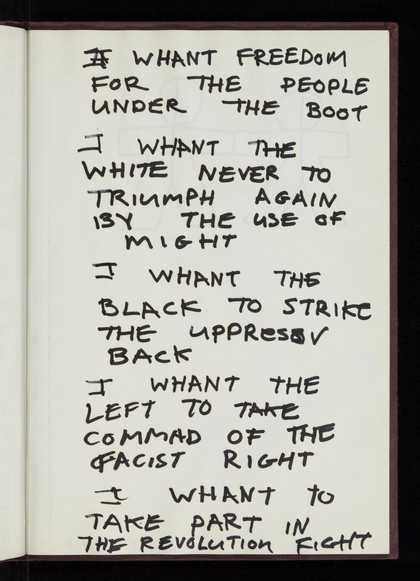 I WHANT FREEDOM
FOR THE PEOPLE
UNDER THE BOOT
I WHANT THE
WHITE NEVER TO
TRIUMPH AGAIN
BY THE USE OF
MIGHT
I WHANT THE
BLACK TO STRIKE
THE UPPRESSV
BACK
I WHANT THE
LEFT TO TAKE
COMMAD OF THE
FACIST RIGHT
I WHANT TO
TAKE PART IN
THE REVOLUTION FIGHT